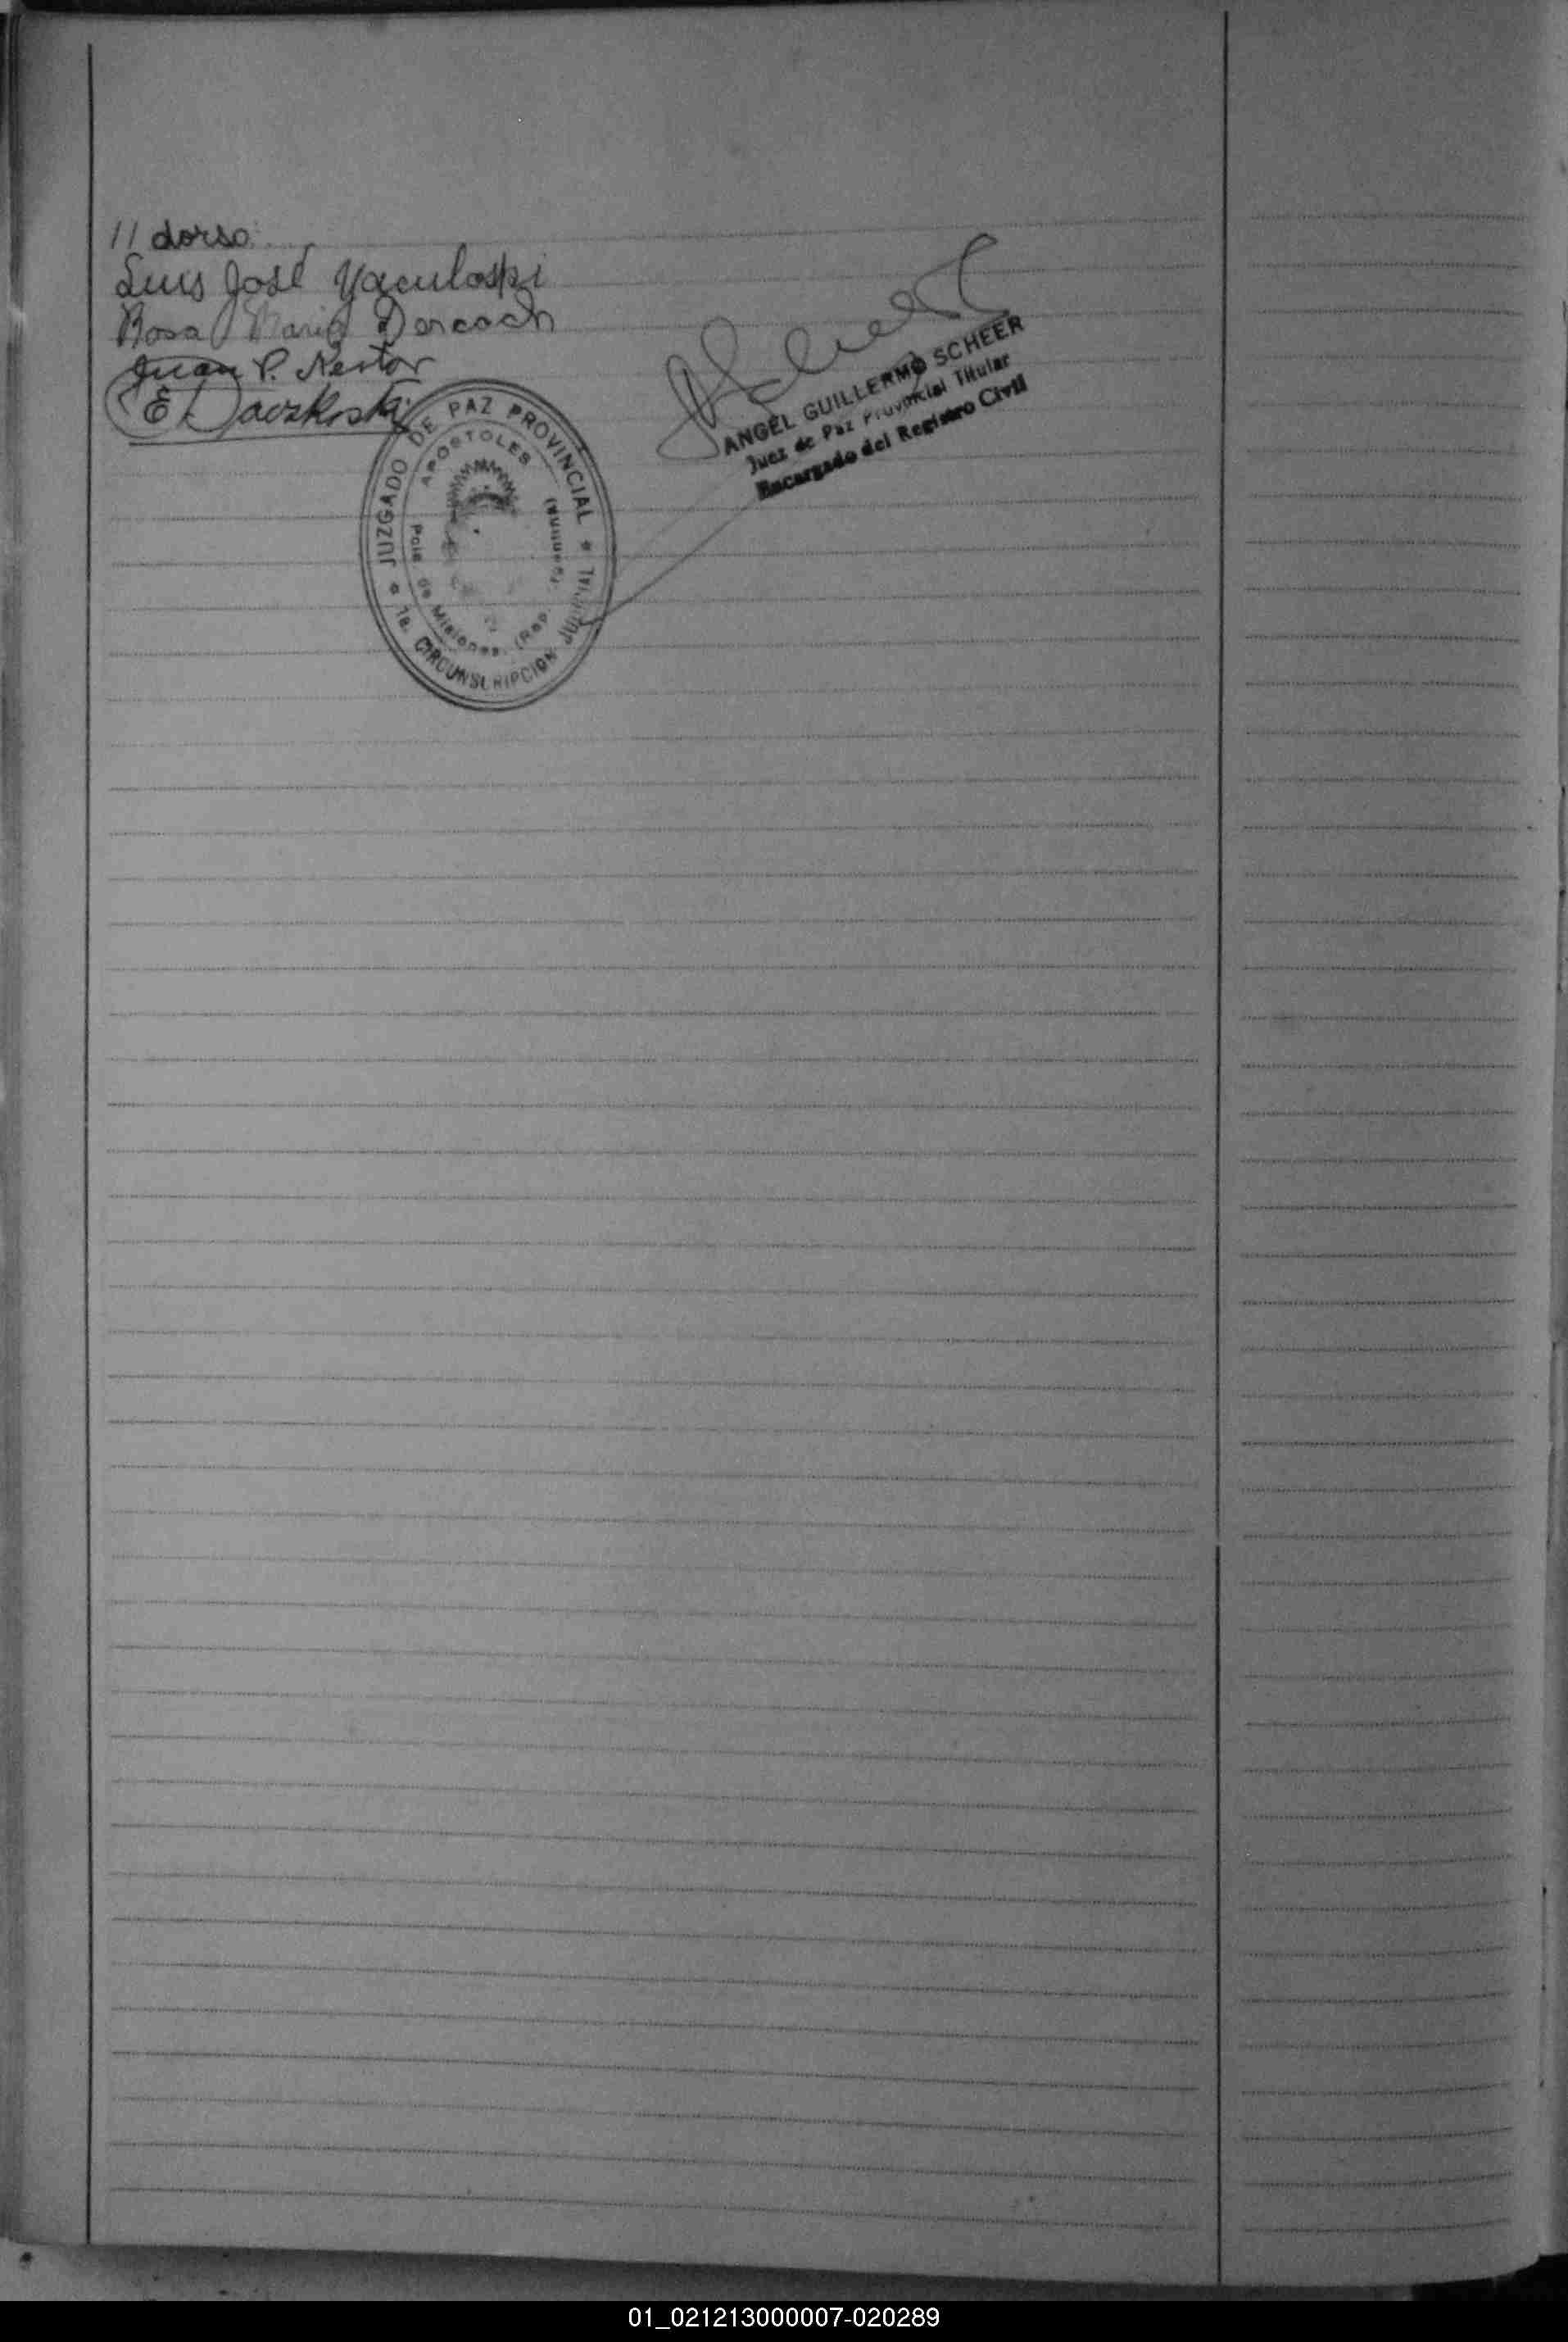 // dorso:
Luis José Yaculoski
Rosa Maria Dercach
Juan P. Nestor
ANGEL GUILLERMO SCHEER
Juez de Paz Provincial Titular
Encargado del Registro Civil
JUZGADO DE PAZ PROVINCIAL
1a. CIRCUNSCRIPCION JUDICIAL
APOSTOLES
de Misiones. (Rep.
01_021213000007-020289